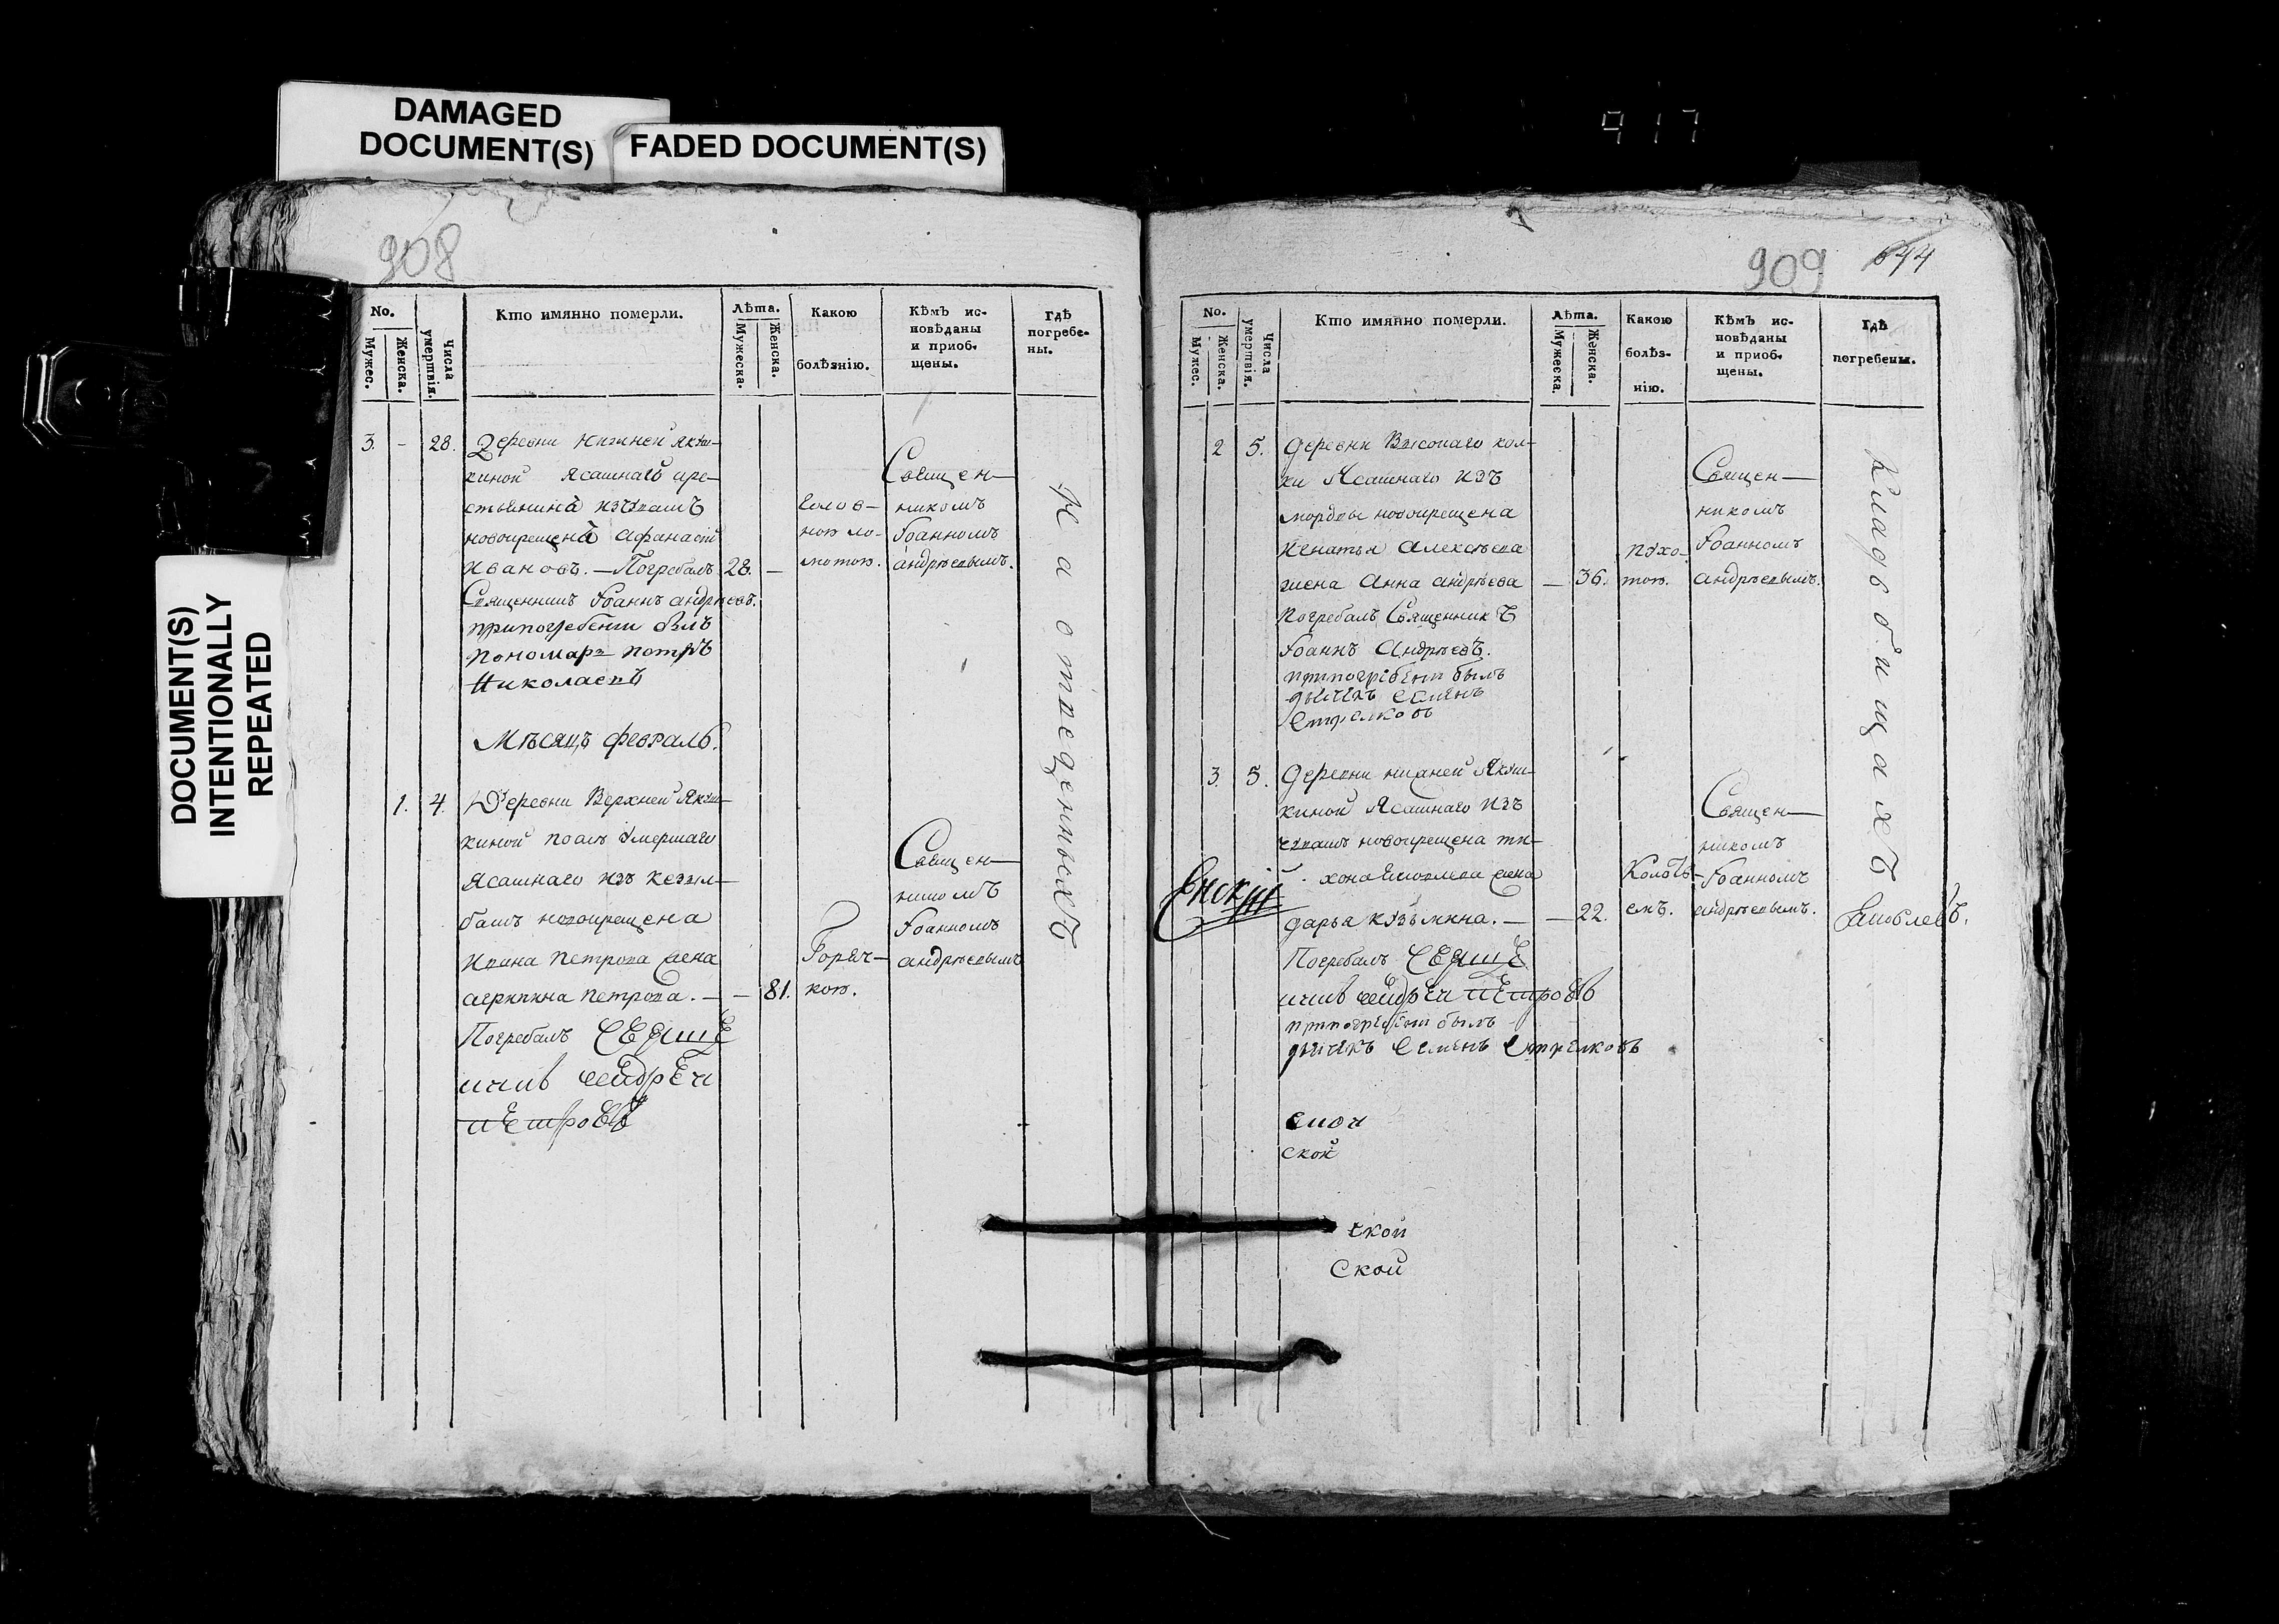 DAMAGED
DOCUMENT(S)
FADED DOCUMENT(S)
DOCUMENT(S)
INTENTIONALLY
REPEATED
917
908
No.
Мужес.
Женска.
Числа
умертвія.
Кто имянно померли.
Лѣта.
Мужеска.
Женска.
Какою
болѣзнію.
Кѣмъ ис-
повѣданы
и приоб-
щены.
Гдѣ
погребе-
ны.
3. - 28.
Деревни Нижней Якуш-
киной Ясашнаго кре-
стьянина
новокрещена Афанасій
Ивановъ. — Погребалъ
Священникъ Іоаннъ Андрѣевъ.
при погребеніи былъ
Пономарь Петръ
Николаевъ
28. —
голов-
ною ло-
мотою.
Священ-
никомъ
Іоанномъ
Андрѣевымъ.
На отведенныхъ
Мѣсяцъ февраль.
1. 4.
Деревни Верхней Якуш-
киной умершаго
Ясашнаго изъ кезыл-
башъ новокрещена
Ивана Петрова жена
Агрипина Петрова. —
Погребалъ Свяще
никъ Андреи
Петровъ
— 81.
Горяч-
кою.
Священ-
никомъ
Іоанномъ
Андрѣевымъ
909
644
No.
Мужес.
Женска.
Числа
умертвія.
Кто имянно померли.
Лѣта.
Мужеска.
Женска.
Какою
болѣз-
нію.
Кѣмъ ис-
повѣданы
и приоб-
щены.
Гдѣ
погребены.
2 5.
Деревни Высокаго кол-
ки Ясашнаго изъ
мордвы новокрещена
Игнатья Алексѣева
жена Анна Андрѣева
Погребалъ Священникъ
Іоаннъ Андрѣевъ.
при погребени былъ
дьячекъ Семенъ
Стрелковъ
— 36.
Сухо-
тою.
Священ-
никомъ
Іоанномъ
Андрѣевымъ.
Кладбищахъ
3. 5.
Деревни нижней Якуш-
киной Ясашнаго изъ
новокрещена Ти-
хона жена
Дарья Кузьмина. —
Погребалъ Свяще
никъ Андреи Петровъ
при погребени былъ
дьячекъ Семенъ Стрелковъ
— 22.
Колоть-
емъ.
Священ-
никомъ
Іоанномъ
Андрѣевымъ.
Енскій
Яковлевъ.
ской
ской
ской